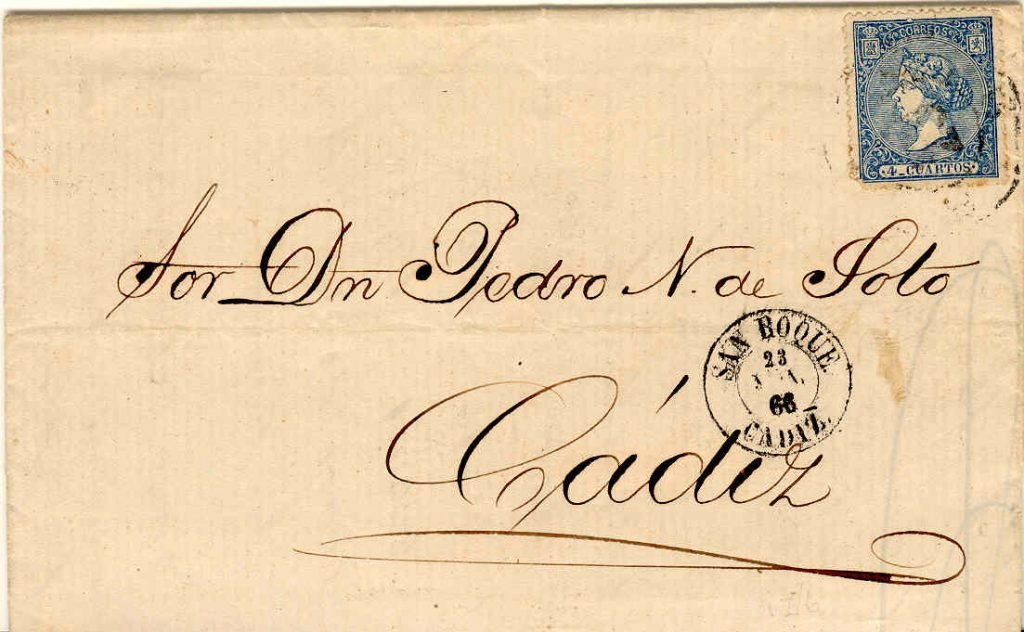 CORREOS
4_CUARTOS
Sor Dn Pedro N. de Soto
SAN ROQUE
23
66
CADIZ.
Cádiz